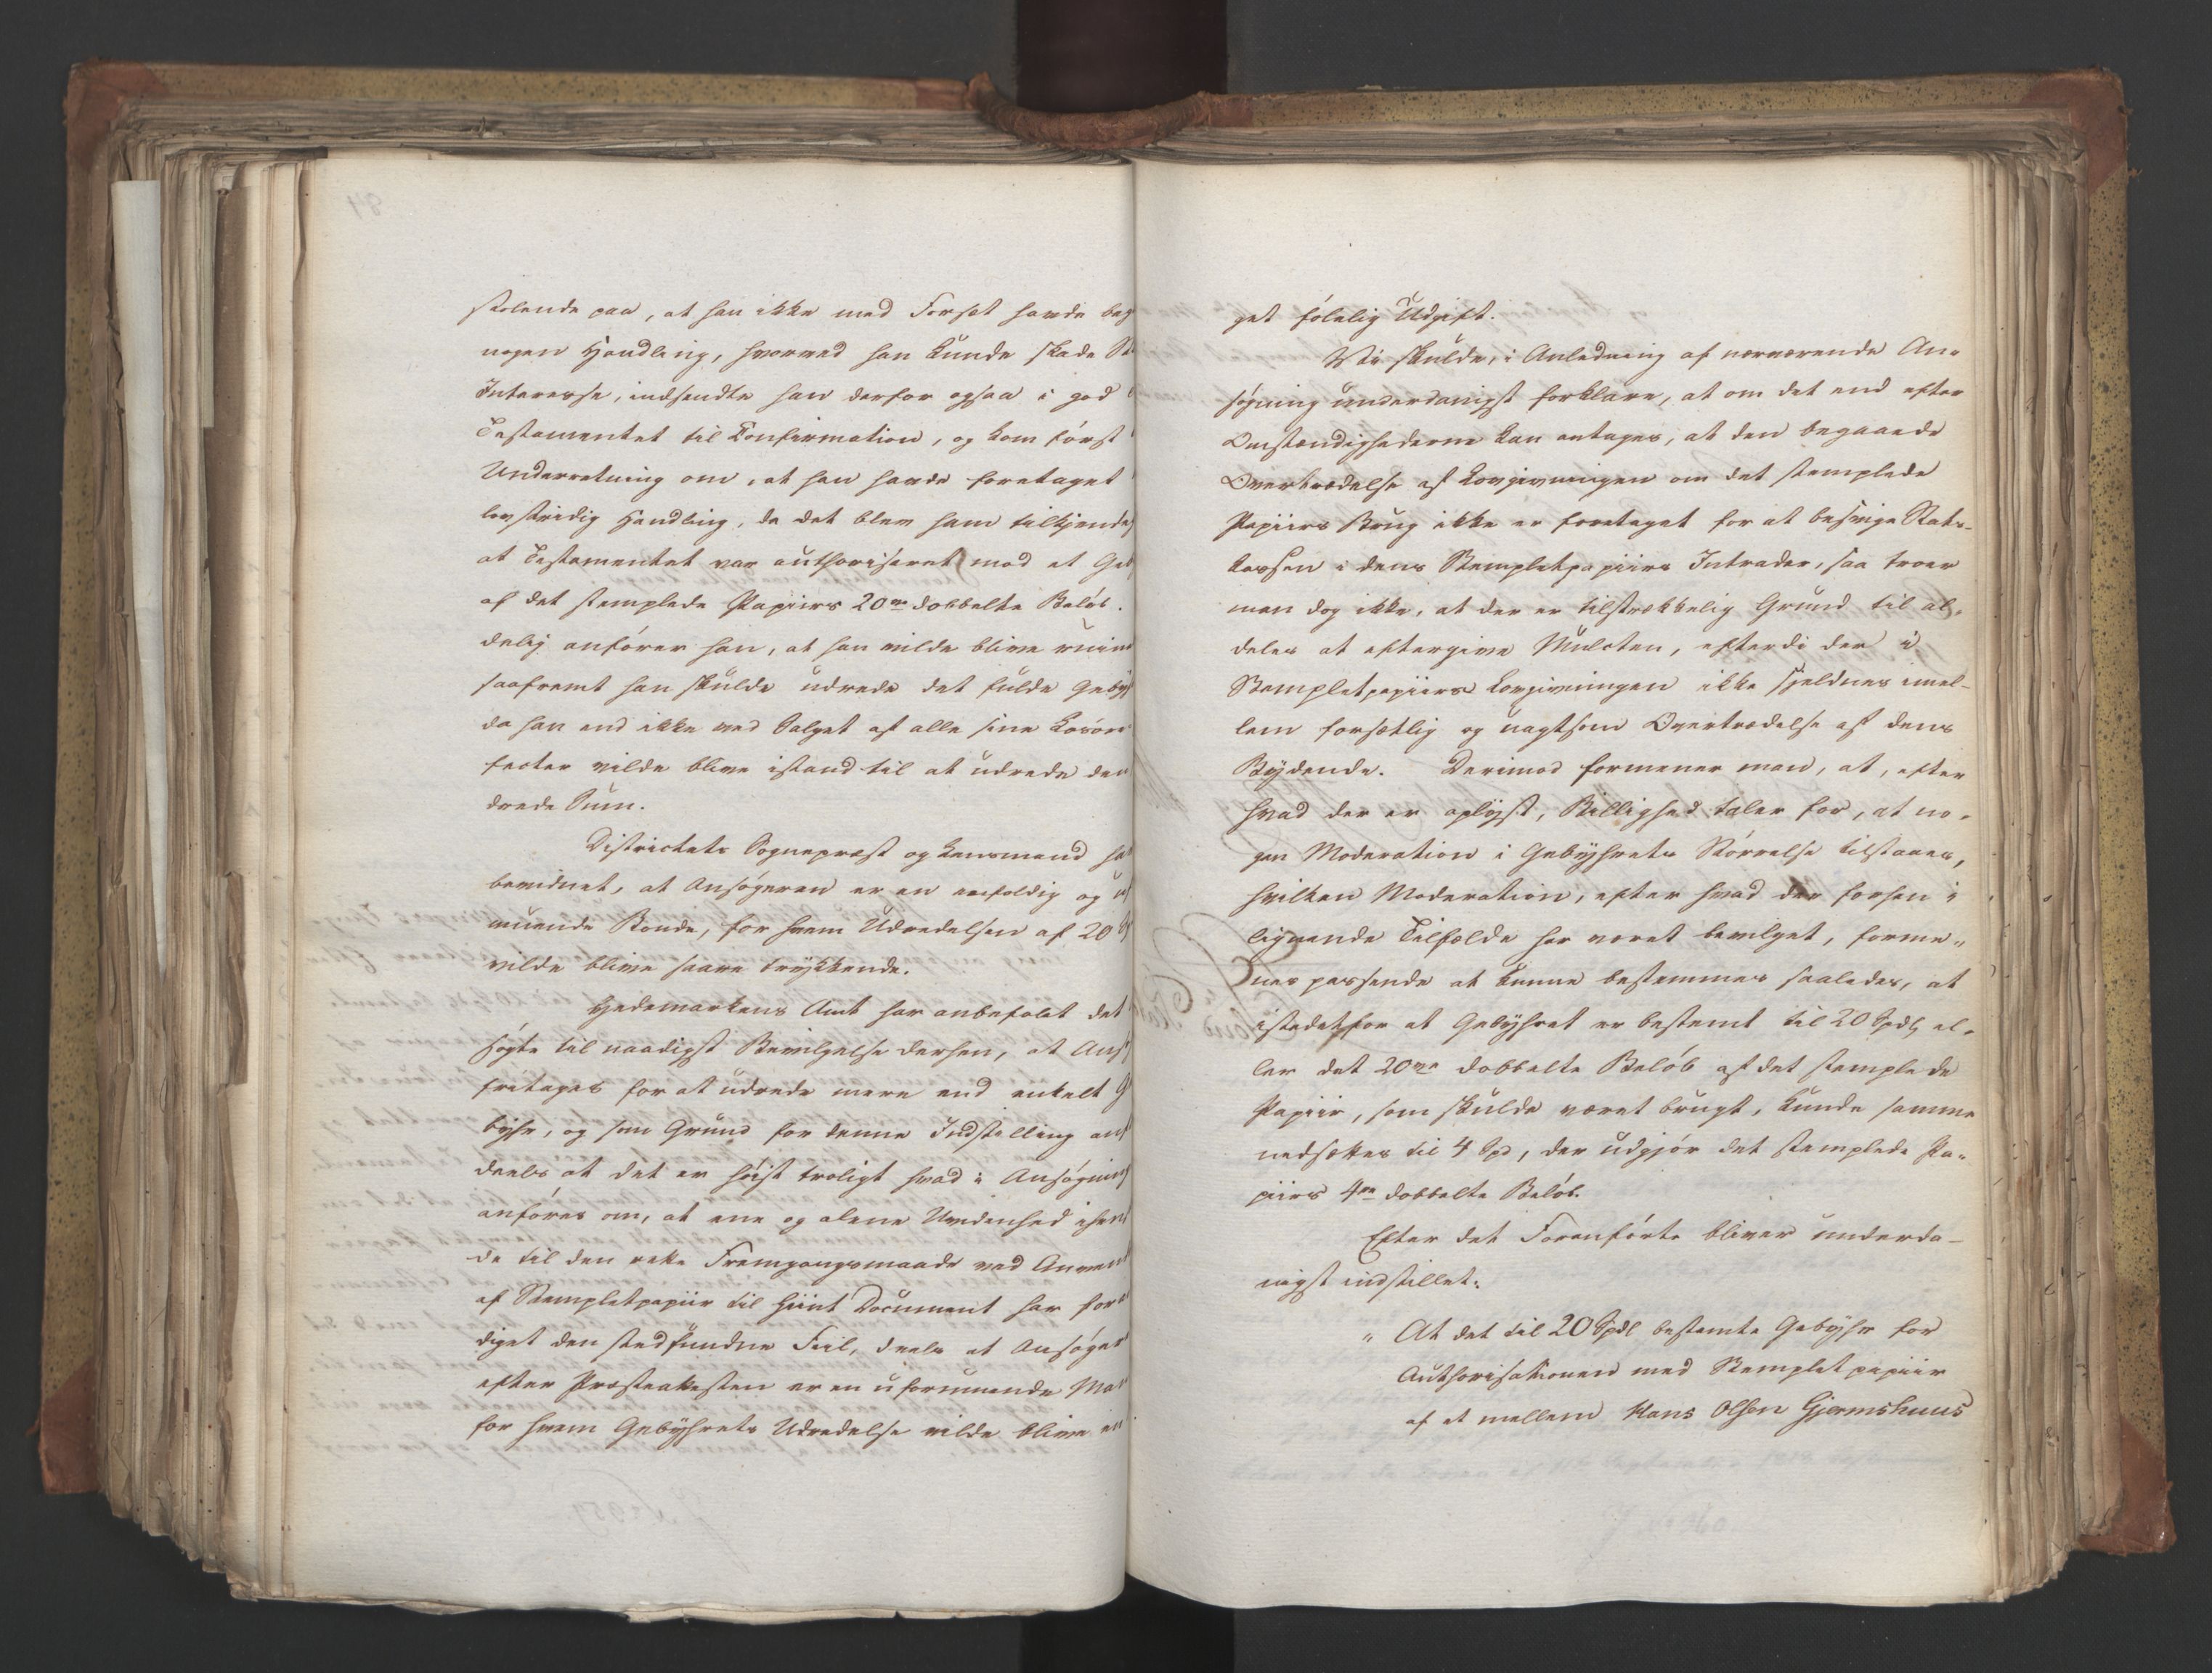 stolende paa, at han ikke med Forsæt havde beg
nogen Handling, hvorved han kunde skade St
Interesse, indsendte han derfor ogsaa i god
Testamentet til Confirmation, og kom først
Underretning om, at han havde foretaget
lovstridig Handling, da det blev ham tilkjende
at Testamentet var authoriseret mod et Geb
af det stemplede Papiirs 20de dobbelte Beløb.
delig anfører han, at han vilde blive ruine
saafremt han skulde udrede det fulde Geby
da han end ikke ved Salget af alle sine Løsøre
fecter vilde blive istand til at udrede den
drede Sum.
Districtets Sognepræst og Lensmand ha
bevidnet, at Ansøgeren er en eenfoldig og uf
muende Bonde, for hvem Udredelsen af 20
vilde blive saare trykkende.
Hedemarkens Amt har anbefalet det
søgte til naadigst Bevilgelse derhen, at Ans
fritages for at udrede mere end enkelt G
byhr, og som Grund for denne Indstilling anf
deels at det er høist troligt hvad i Ansøgning
anføres om, at ene og alene Uvidenhed ihen
de til den rette Fremgangsmaade ved Anvend
af Stempletpapiir til hiint Document har for
diget den stedfundne Feil, deels at Ansøger
efter Præsteattesten er en uformuende Ma
for hvem Gebyhrets Udredelse vilde blive en
get følelig Udgift.
Vi skulde, i Anledning af nærværende An-
søgning underdanigst forklare, at om det end efter
Omstændighederne kan antages, at den begaaede
Overtrædelse af Lovgivningen om det stemplede
Papiirs Brug ikke er foretaget for at besvige Stats-
kassen i dens Stempletpapiirs Intrader, saa troer
man dog ikke, at der er tilstrækkelig Grund til al-
deles at eftergive Mulcten, efterdi der i
Stempletpapiirs Lovgivningen ikke skjeldnes imel-
lem forsætlig og uagtsom Overtrædelse af dens
Bydende. Derimod formener man, at, efter
hvad der er oplyst, Billighed taler for, at no-
gen Moderation i Gebyhrets Størrelse tilstaaes,
hvilken Moderation, efter hvad der forhen i
lignende Tilfælde har været bevilget, forme-
nes passende at kunne bestemmes saaledes, at
istedetfor at Gebyhret er bestemt til 20 Spdl, el-
ler det 20de dobbelte Beløb af det stemplede
Papiir, som skulde været brugt, kunde samme
nedsættes til 4 Spd, der udgjør det stemplede Pa-
piirs 4de dobbelte Beløb.
Efter det Foranførte bliver underda-
nigst indstillet:
" At det til 20 Spdl bestemte Gebyhr for
Authorisationen med Stempletpapiir
af et mellem Hans Olsen Gjermshuus